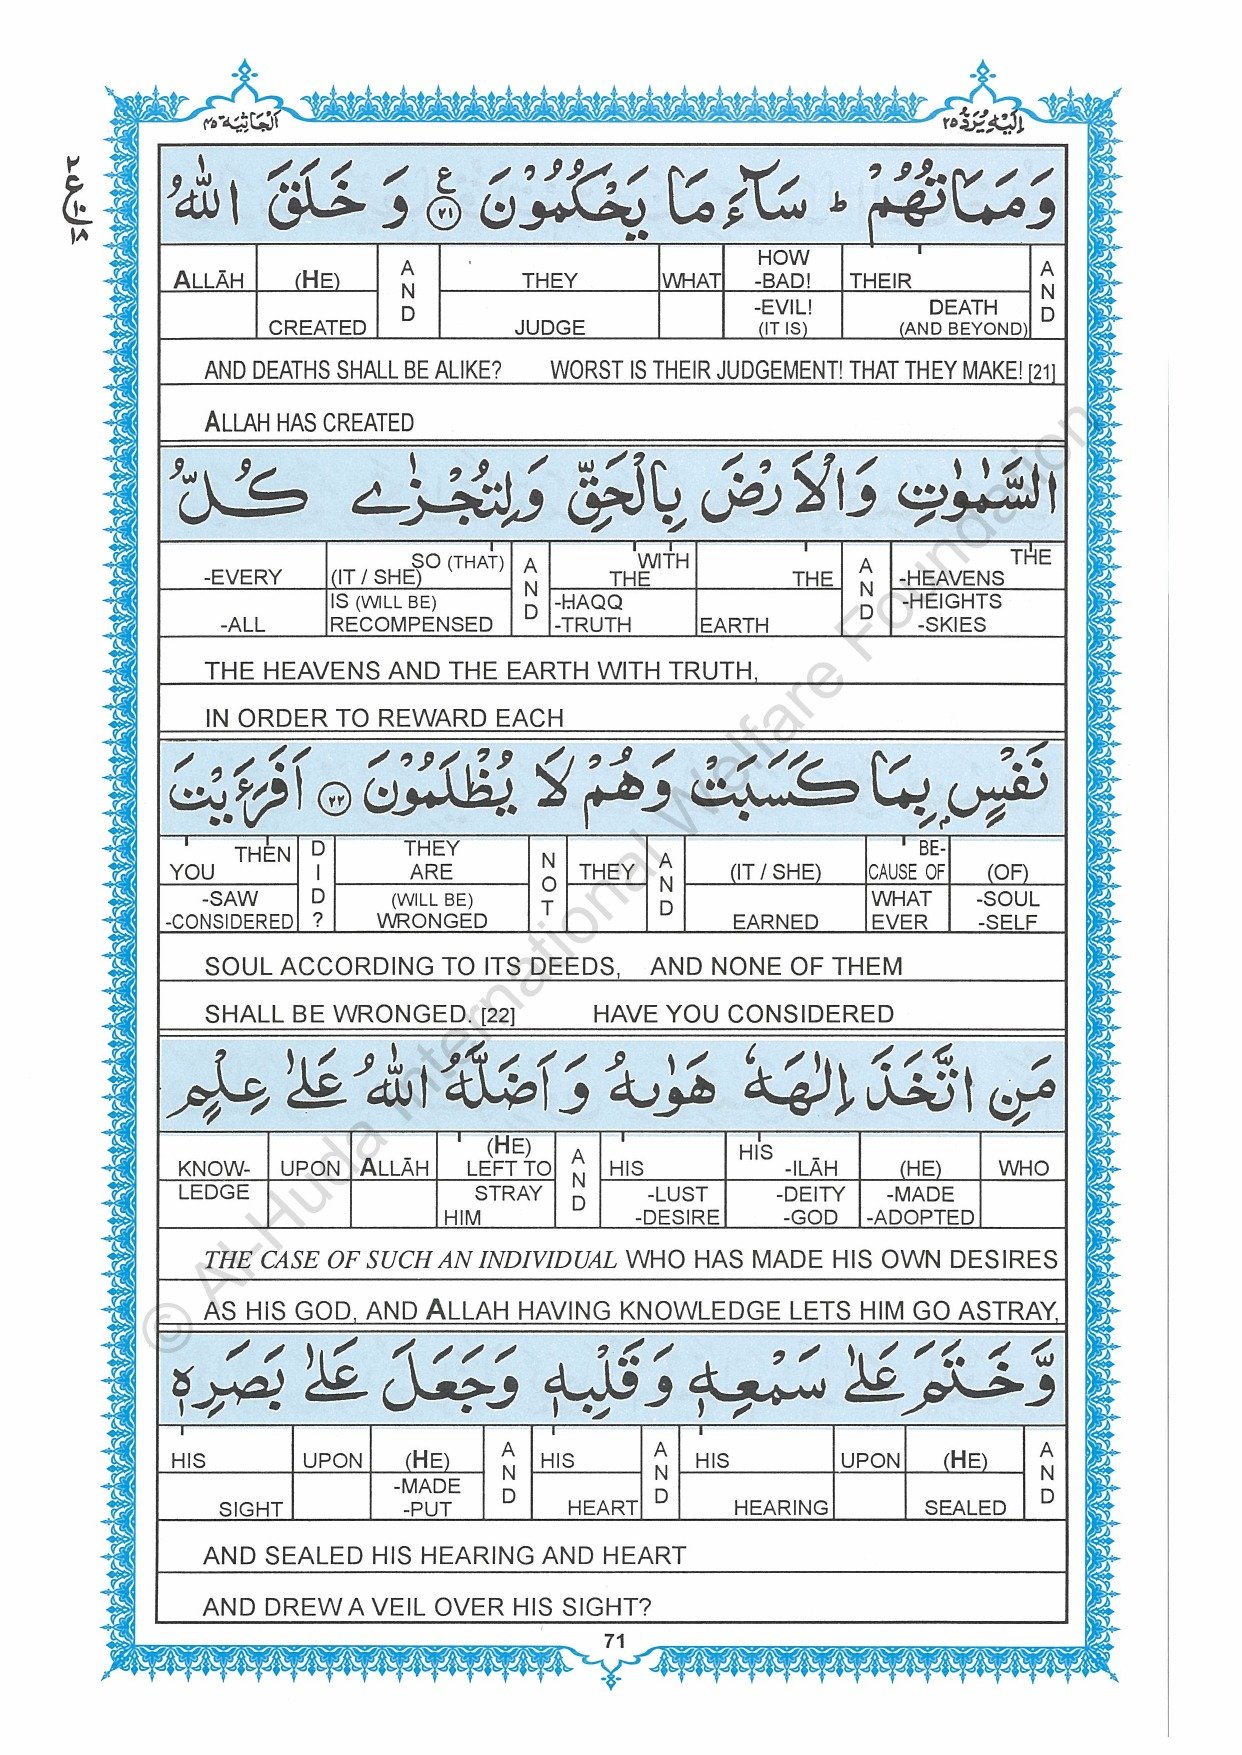 اَلْجَاثِيَة ٤٥
اِلَيْهِ يُرَدُّ ٢٥
وَمَمَاتُهُمْ ؕ سَآءَ مَا يَحْكُمُوْنَ ﴿٢١﴾ ع وَ خَلَقَ اللّٰهُ
ع
٢
١٠
١٨
HOW
ALLĀH (HE) AND THEY WHAT -BAD! THEIR AND
CREATED JUDGE -EVIL! (IT IS) DEATH (AND BEYOND)
AND DEATHS SHALL BE ALIKE? WORST IS THEIR JUDGEMENT! THAT THEY MAKE! [21]
ALLAH HAS CREATED
السَّمٰوٰتِ وَالْاَرْضَ بِالْحَقِّ وَلِتُجْزٰى كُلُّ
-EVERY SO (THAT) (IT / SHE) AND WITH THE THE AND THE -HEAVENS
-ALL IS (WILL BE) RECOMPENSED -HAQQ -TRUTH EARTH -HEIGHTS -SKIES
THE HEAVENS AND THE EARTH WITH TRUTH,
IN ORDER TO REWARD EACH
نَفْسٍۭ بِمَا كَسَبَتْ وَهُمْ لَا يُظْلَمُوْنَ ﴿٢٢﴾ اَفَرَءَيْتَ
YOU THEN DID? THEY ARE NOT THEY AND (IT / SHE) BE-CAUSE OF (OF)
-SAW -CONSIDERED (WILL BE) WRONGED EARNED WHAT EVER -SOUL -SELF
SOUL ACCORDING TO ITS DEEDS, AND NONE OF THEM
SHALL BE WRONGED. [22] HAVE YOU CONSIDERED
مَنِ اتَّخَذَ اِلٰهَهٗ هَوٰىهُ وَاَضَلَّهُ اللّٰهُ عَلٰى عِلْمٍ
KNOW- UPON ALLĀH (HE) LEFT TO AND HIS HIS -ILĀH (HE) WHO
LEDGE STRAY HIM -LUST -DESIRE -DEITY -GOD -MADE -ADOPTED
THE CASE OF SUCH AN INDIVIDUAL WHO HAS MADE HIS OWN DESIRES
AS HIS GOD, AND ALLAH HAVING KNOWLEDGE LETS HIM GO ASTRAY,
وَّخَتَمَ عَلٰى سَمْعِهٖ وَقَلْبِهٖ وَجَعَلَ عَلٰى بَصَرِهٖ
HIS UPON (HE) AND HIS AND HIS UPON (HE) AND
SIGHT -MADE -PUT HEART HEARING SEALED
AND SEALED HIS HEARING AND HEART
AND DREW A VEIL OVER HIS SIGHT?
71
© Al-Huda International Welfare Foundation